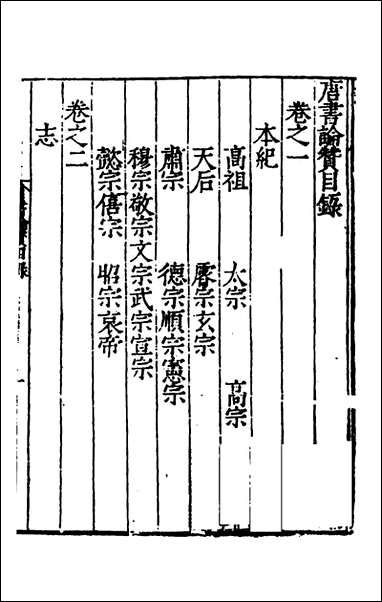 唐書論贊目錄
卷之一
本紀
高祖 太宗 高宗
天后 睿宗玄宗
肅宗 德宗順宗憲宗
穆宗敬宗文宗武宗宣宗
懿宗僖宗 昭宗哀帝
卷之二
志